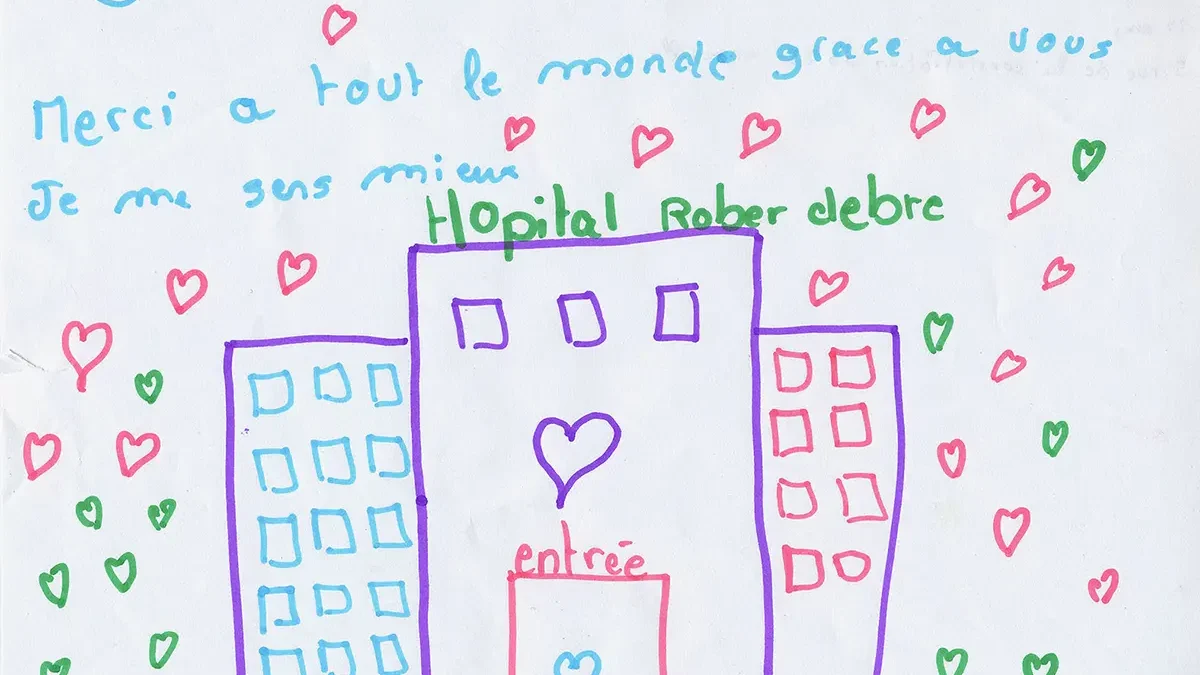 Merci a tout le monde grace a vous
Je me sens mieux
Hopital Rober debre
entrée